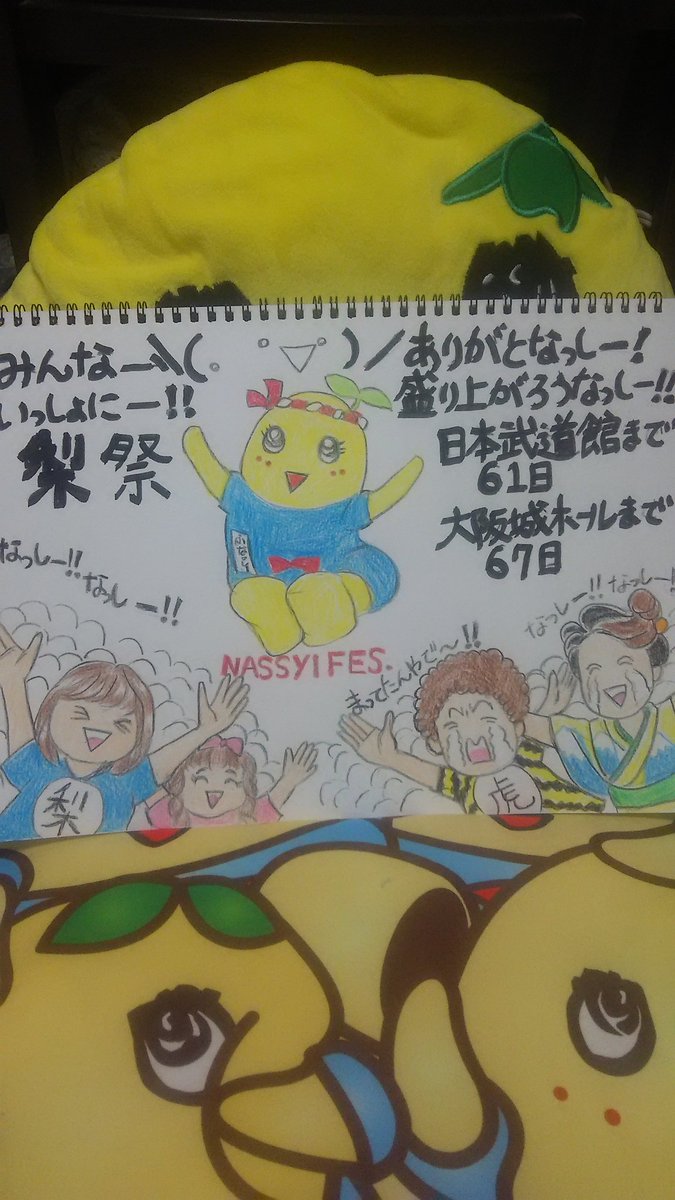 みんなー\(。°▽°)/ありがとなっしー!
いっしょにー!!
盛り上がろうなっしー!!
梨祭
日本武道館まで
61日
大阪城ホールまで
67日
ふなっしー
なっしー!!
なっしー!!
NASSYI FES.
まってたんやで〜!!
なっしー!!
なっしー!!
梨
虎